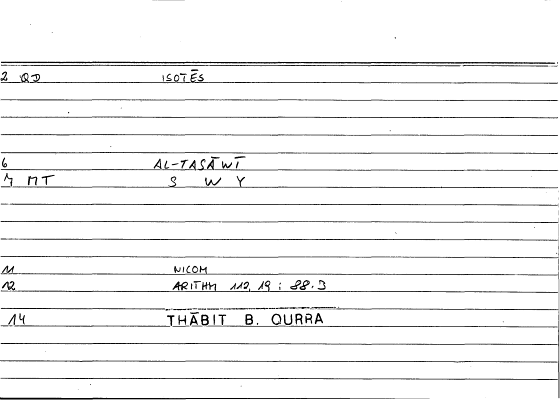 2 QD ISOTĒS
6 AL-TASĀWĪ
7 MT S W Y
11 NICOM
12 ARITHM 112, 19 : 88.3
14 THĀBIT B. QURRA